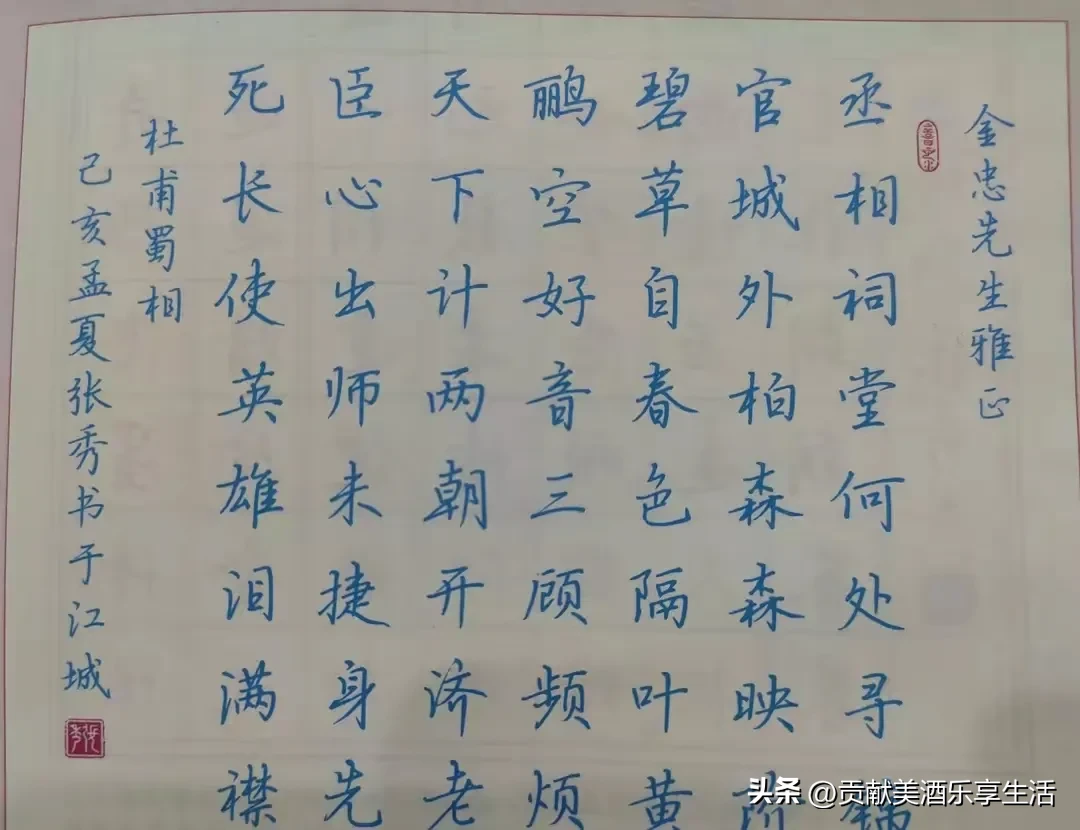 金忠先生雅正
丞相祠堂何处寻锦
官城外柏森森映阶
碧草自春色隔叶黄
鹂空好音三顾频烦
天下计两朝开济老
臣心出师未捷身先
死长使英雄泪满襟
杜甫蜀相
己亥孟夏张秀书于江城
头条 @贡献美酒乐享生活